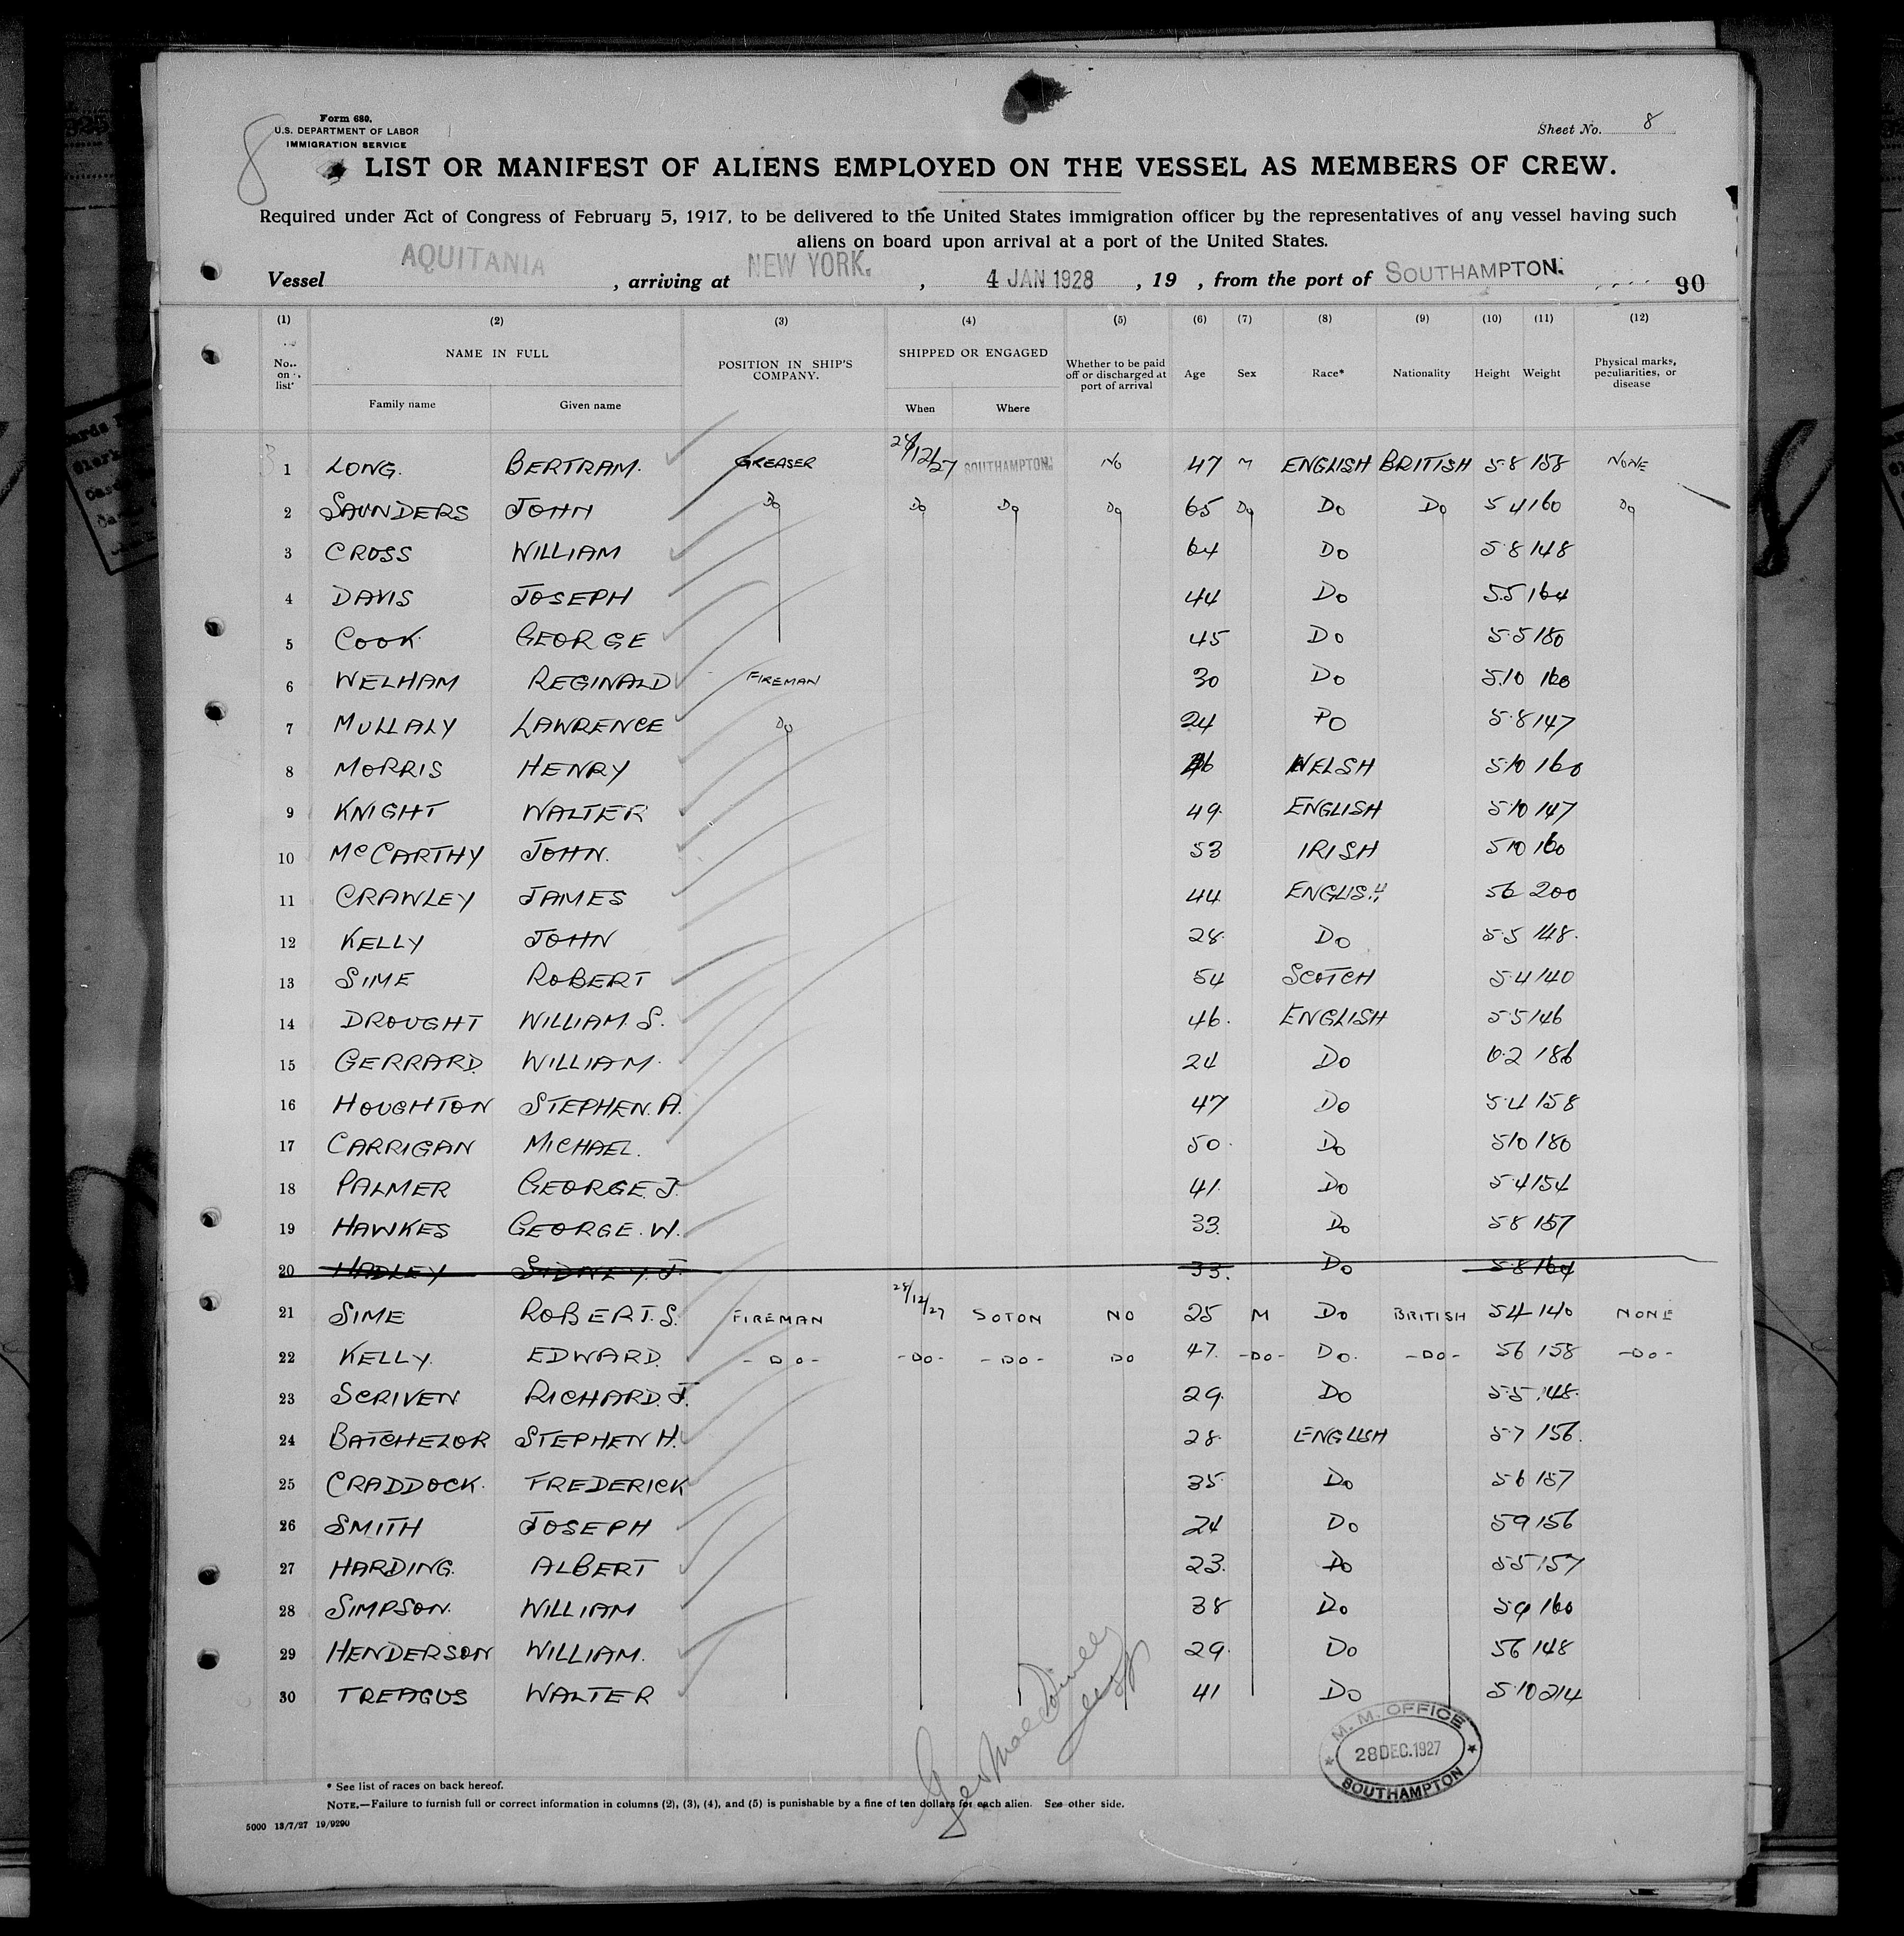 8
Form 680.
U.S. DEPARTMENT OF LABOR
IMMIGRATION SERVICE
Sheet No. 8
LIST OR MANIFEST OF ALIENS EMPLOYED ON THE VESSEL AS MEMBERS OF CREW.
Required under Act of Congress of February 5, 1917, to be delivered to the United States immigration officer by the representatives of any vessel having such
aliens on board upon arrival at a port of the United States.
Vessel AQUITANIA, arriving at NEW YORK., 4 JAN 1928, 19 , from the port of SOUTHAMPTON. 90
(1) (2) (3) (4) (5) (6) (7) (8) (9) (10) (11) (12)
No. on list NAME IN FULL POSITION IN SHIP'S COMPANY. SHIPPED OR ENGAGED Whether to be paid off or discharged at port of arrival Age Sex Race* Nationality Height Weight Physical marks, peculiarities, or disease
Family name Given name When Where
1 LONG. BERTRAM. GREASER 28/12/27 SOUTHAMPTON. NO 47 M ENGLISH BRITISH 5 8 158 NONE
2 SAUNDERS JOHN Do Do Do Do 65 Do Do Do 5 4 160 Do
3 CROSS WILLIAM 64 Do 5 8 148
4 DAVIS JOSEPH 44 Do 5.5 164
5 COOK GEORGE 45 Do 5.5 180
6 WELHAM REGINALD FIREMAN 30 Do 5.10 160
7 MULLALY LAWRENCE Do 24 Do 5.8 147
8 MORRIS HENRY WELSH 5 10 160
9 KNIGHT WALTER 49. ENGLISH 5 10 147
10 McCARTHY JOHN. 53 IRISH 5 10 160
11 CRAWLEY JAMES 44 ENGLISH 5 6 200
12 KELLY JOHN 28. Do 5.5 148.
13 SIME ROBERT 54 SCOTCH 5.4 140
14 DROUGHT WILLIAM. S. 46. ENGLISH 5.5 146
15 GERRARD. WILLIAM. 24 Do 6.2 186
16 HOUGHTON STEPHEN. A. 47 Do 5.4 158
17 CARRIGAN MICHAEL. 50. Do 5 10 180
18 PALMER GEORGE. J. 41. Do 5.4 154
19 HAWKES GEORGE. W. 33. Do 5 8 157
20 HADLEY SIDNEY. J. 33. Do 5.8 164
21 SIME ROBERT. S. FIREMAN 28/12/27 SOTON NO 25 M Do BRITISH 5 4 140 NONE
22 KELLY. EDWARD. -DO- -DO- -DO- DO 47. -DO- Do. -DO- 5 6 158 -DO-
23 SCRIVEN RICHARD. J. 29. Do 5.5 148.
24 BATCHELOR STEPHEN H. 28. ENGLISH 5.7 156.
25 CRADDOCK. FREDERICK 35. Do 5 6 157
26 SMITH JOSEPH 24 Do 5 9 156
27 HARDING. ALBERT 23. Do 5 5 157
28 SIMPSON. WILLIAM 38 Do 5.9 160
29 HENDERSON WILLIAM. 29. Do 5 6 148
30 TREAGUS WALTER 41 Do 5.10 214
M. M. OFFICE
28 DEC. 1927
SOUTHAMPTON
* See list of races on back hereof.
NOTE.—Failure to furnish full or correct information in columns (2), (3), (4), and (5) is punishable by a fine of ten dollars for each alien. See other side.
5000 13/7/27 19/9290